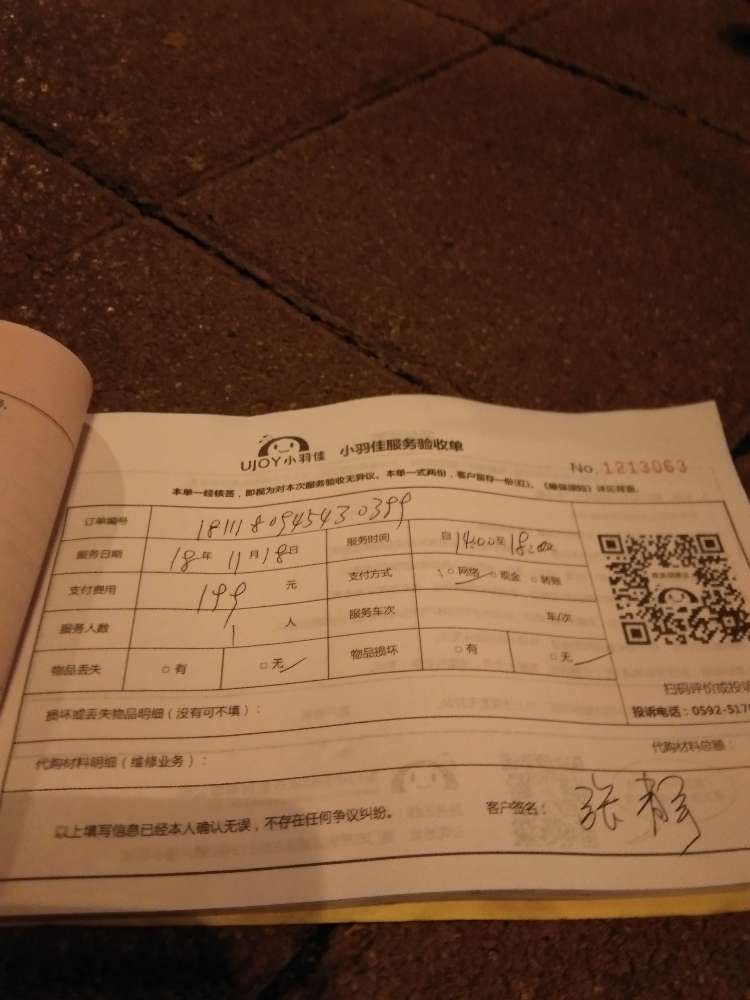 UJOY小羽佳 小羽佳服务验收单
No. 1213063
本单一经核签，即视为对本次服务验收无异议。本单一式两份，客户留存一份(红)。《维保须知》详见背面。
订单编号 1811180945430399
服务日期 18年 11月 18日 服务时间 自 14:00至 18:00
支付费用 199 元 支付方式 □网络 □现金 □转账
服务人数 1 人 服务车次 车/次
物品丢失 □有 □无 物品损坏 □有 □无
扫码评价或投诉
投诉电话：0592-517
损坏或丢失物品明细（没有可不填）：
代购材料明细（维修业务）： 代购材料总额：
以上填写信息已经本人确认无误，不存在任何争议纠纷。 客户签名： 张静